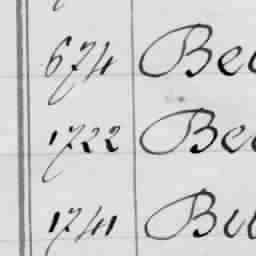 674 Be
1722 Be
1741 B